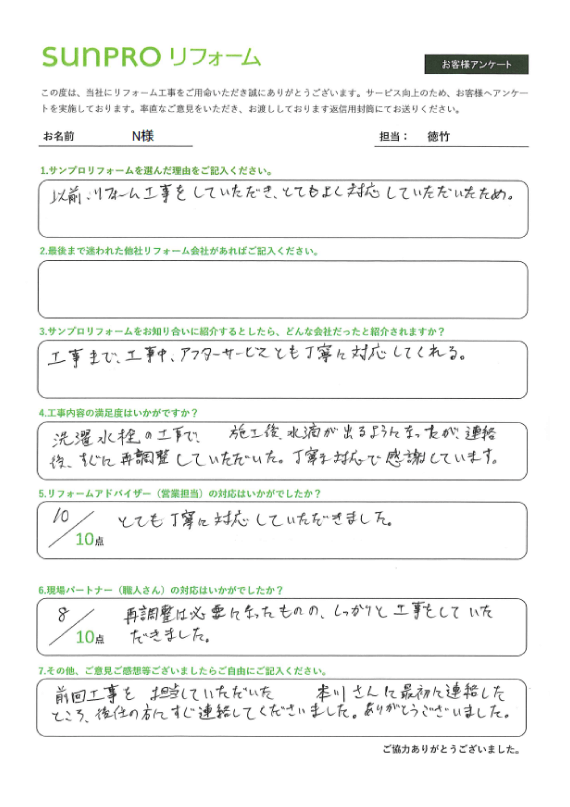 SUNPRO リフォーム
お客様アンケート
この度は、当社にリフォーム工事をご用命いただき誠にありがとうございます。サービス向上のため、お客様へアンケー
トを実施しております。率直なご意見をいただき、お渡ししております返信用封筒にてお送りください。
お名前 N様 担当： 徳竹
1.サンプロリフォームを選んだ理由をご記入ください。
以前、リフォーム工事をしていただき、とてもよく対応していただいたため。
2.最後まで迷われた他社リフォーム会社があればご記入ください。
3.サンプロリフォームをお知り合いに紹介するとしたら、どんな会社だったと紹介されますか？
工事まで、工事中、アフターサービスとも丁寧に対応してくれる。
4.工事内容の満足度はいかがですか？
洗濯水栓の工事で、 施工後、水滴が出るようになったが、連絡
後、すぐに再調整していただいた。丁寧な対応で感謝しています。
5.リフォームアドバイザー（営業担当）の対応はいかがでしたか？
10/10点 とても丁寧に対応していただきました。
6.現場パートナー（職人さん）の対応はいかがでしたか？
8/10点 再調整は必要になったものの、しっかりと工事をしていた
だきました。
7.その他、ご意見ご感想等ございましたらご自由にご記入ください。
前回工事を 担当していただいた 本川さんに最初に連絡した
ところ、後任の方にすぐ連絡してくださいました。ありがとうございました。
ご協力ありがとうございました。